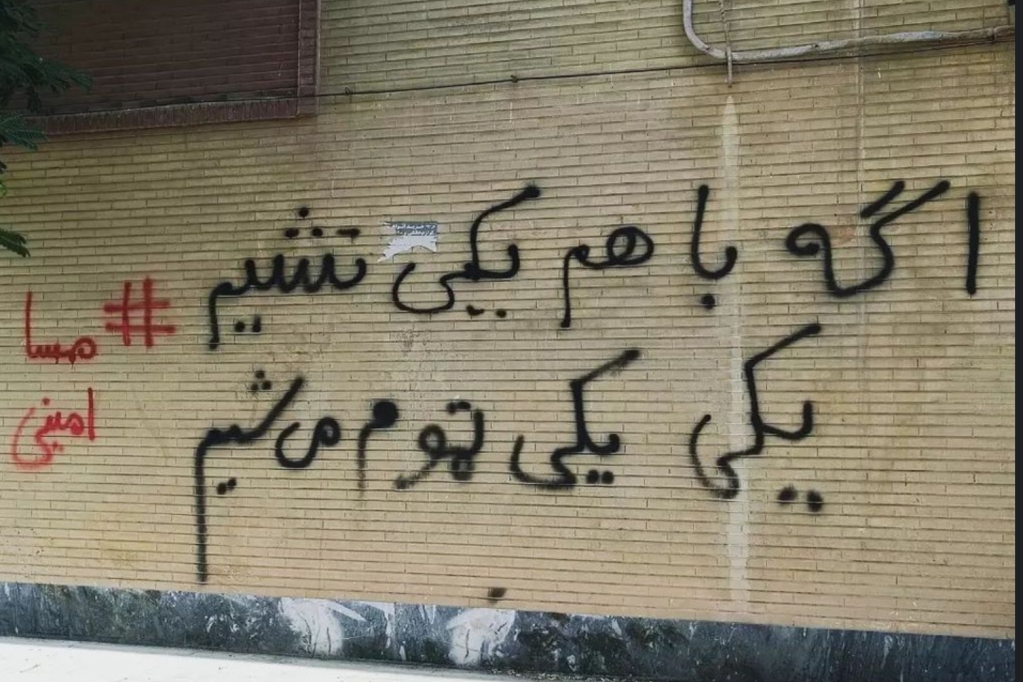 اگه با هم یکی نشیم
یکی یکی تموم می شیم
#مهسا
امینی